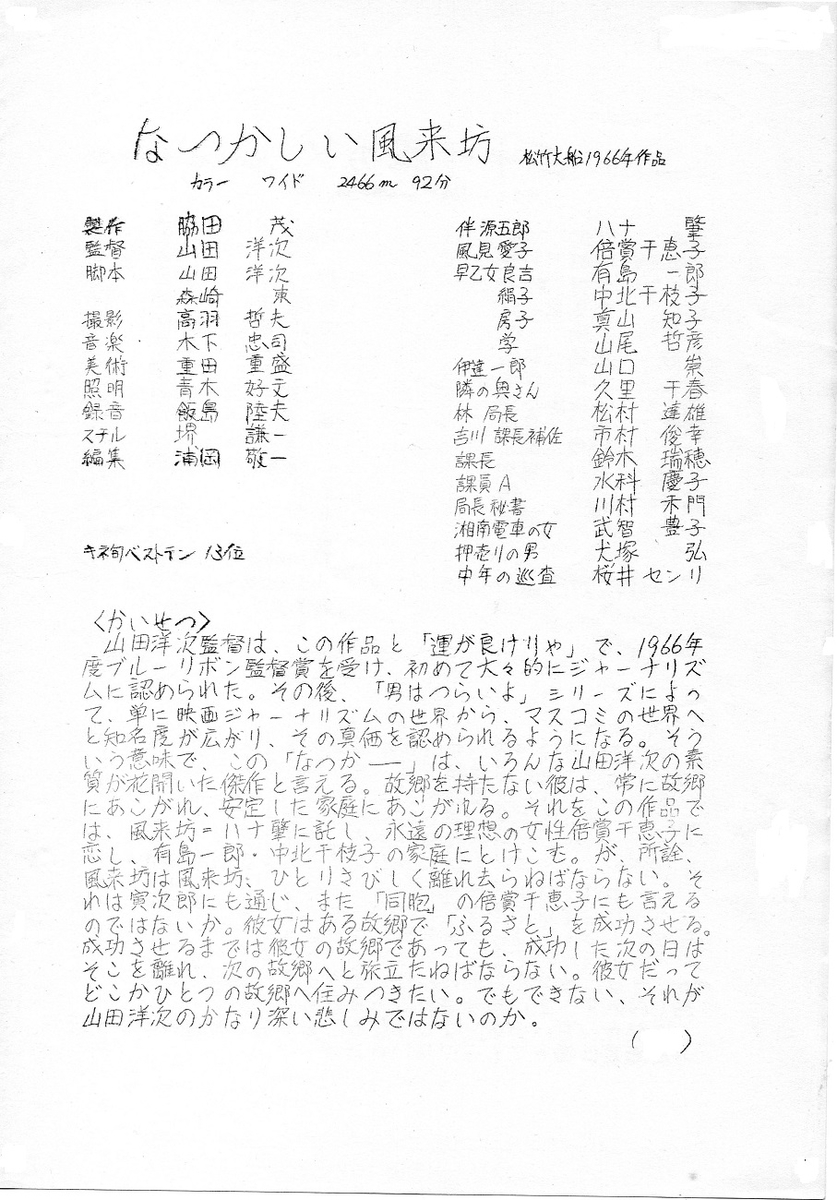 なつかしい風来坊 松竹大船1966年作品
カラー ワイド 2466m 92分
製作 脇田 茂
監督 山田 洋次
脚本 山田 洋次
森崎 東
撮影 高羽 哲夫
音楽 木下 忠司
美術 重田 重盛
照明 青木 好文
録音 飯島 陸夫
スチル 堺 謙一
編集 浦岡 敬一
キネ旬ベストテン 13位
伴 源五郎 ハナ 肇
風見 愛子 倍賞 千恵子
早乙女良吉 有島 一郎
絹子 中北 千枝子
房子 真山 知子
学 山尾 哲彦
伊達一郎 山口 崇
隣の奥さん 久里 千春
林 局長 松村 達雄
吉川 課長補佐 市村 俊幸
課長 鈴木 瑞穂
課員A 水科 慶子
局長秘書 川村 禾門
湘南電車の女 武智 豊子
押売りの男 犬塚 弘
中年の巡査 桜井センリ
〈かいせつ〉
山田洋次監督は、この作品と「運が良けりゃ」で、1966年
度ブルーリボン監督賞を受け、初めて大々的にジャーナリズ
ムに認められた。その後、「男はつらいよ」シリーズによっ
て、単に映画ジャーナリズムの世界から、マスコミの世界へ
と知名度が広がり、その真価を認められるようになる。そう
いう意味で、この「なつか――」は、いろんな山田洋次の素
質が花開いた傑作と言える。故郷を持たない彼は、常に故郷
にあこがれ、安定した家庭にあこがれる。それをこの作品で
は、風来坊=ハナ肇に託し、永遠の理想の女性倍賞千恵子に
恋し、有島一郎・中北千枝子の家庭にとけこむ。が、所詮、
風来坊は風来坊、ひとりさびしく離れ去らねばならない。そ
れは寅次郎にも通じ、また「同胞」の倍賞千恵子にも言える
のではないか。彼女はある故郷で「ふるさと」を成功させる。
成功させるまでは彼女の故郷であっても、成功した次の日は
そこを離れ、次の故郷へと旅立たねばならない。彼女だって
どこかひとつの故郷へ住みつきたい。でもできない、それが
山田洋次のかなり深い悲しみではないのか。
( )